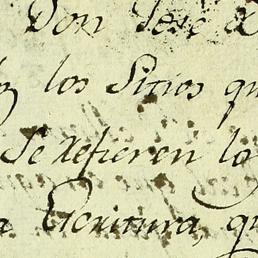 Don Jose
los Sitios qu
Se refieren lo
Escritura, qu